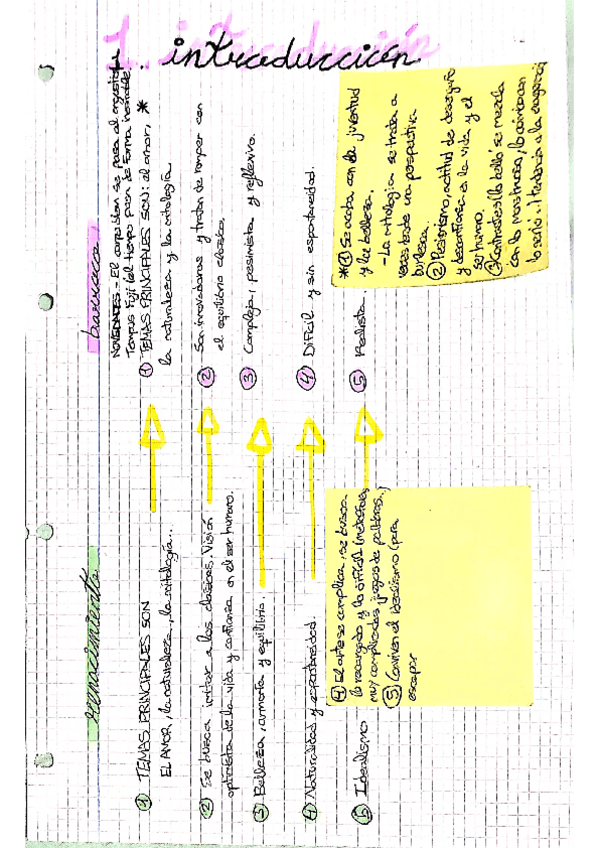 1. introducción
introducción
renacimiento
① TEMAS PRINCIPALES SON
EL AMOR, la naturaleza, la mitología...
② Se busca imitar a los clásicos. Visión
optimista de la vida y confianza en el ser humano.
③ Belleza, armonía y equilibrio.
④ Naturalidad y espontaneidad.
⑤ Idealismo
④ El arte se complica, se busca
lo recargado y lo difícil (metáforas
muy complicadas, juegos de palabras..)
⑤ Conviven el idealismo (para
escapar
barroco
NOVEDADES.- El carpe diem se pasa al angustioso
Tempus Fugit (el tiempo pasa de forma
① TEMAS PRINCIPALES SON: el amor, *
la naturaleza y la mitología
② Son innovadores y tratan de romper con
el equilibrio clásico.
③ Complejo, pesimista y reflexivo.
④ Difícil y sin espontaneidad.
⑤ Realista.
*① Se acaba con la juventud
y la belleza.
- La mitología se trata a
veces desde una perspectiva
burlesca.
② Pesimismo, actitud de desengaño
y desconfianza a la vida y el
ser humano.
③ Contrastes (lo bello se mezcla
con lo monstruoso, lo cómico con
lo serio..) tendencia a la exageración